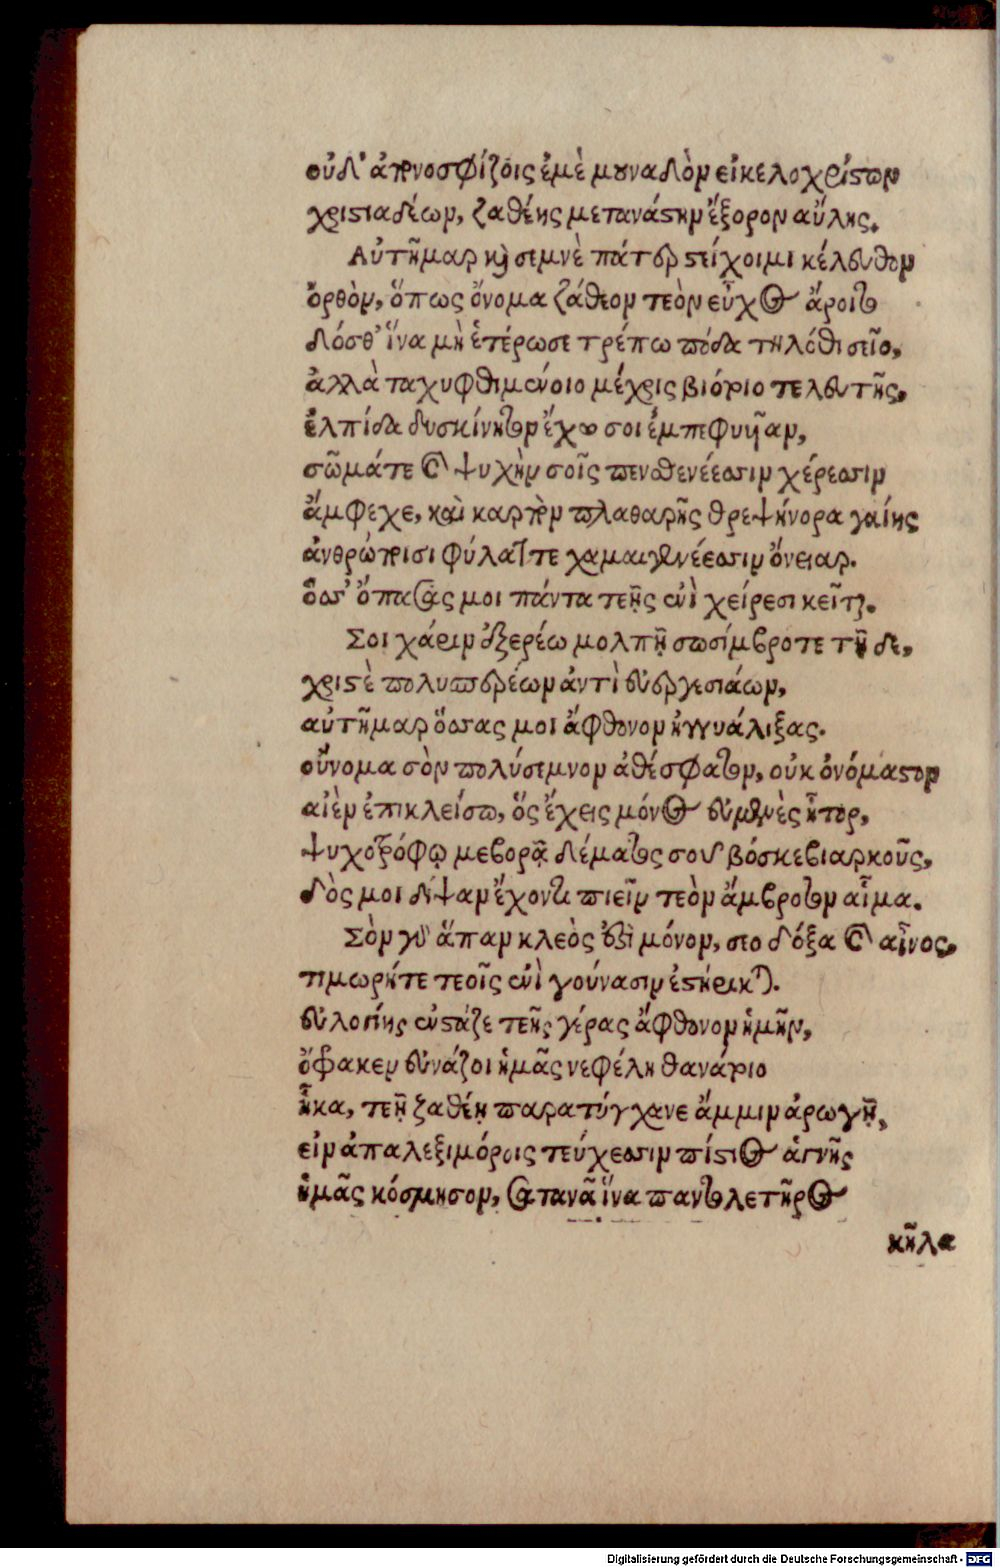 οὐδ' ἀπνοσφίζοις ἐμὲ μουναδὸν εἰκελοχρίστων
χριστιαδέων, ζαθέης μετανάστην ἔξορον αὔλης.
Αὐτῆμαρ καὶ σεμνὲ πάτερ στείχοιμι κέλευθον
ὀρθὸν, ὅπως ὄνομα ζάθεον τεὸν εὖχος ἄροιτο
δόσθ' ἵνα μὴ ἑτέρωσε τρέπω πόδα τηλόθι σεῖο,
ἀλλὰ ταχυφθιμένοιο μέχρις βιότοιο τελευτῆς,
ἐλπίδα δυσκίνητον ἔχω σοι ἐμπεφυῆαν,
σῶμάτε καὶ ψυχὴν σοῖς χέρεσσιν
ἄμφεχε, καὶ καρπὸν θρεψήνορα γαίης
ἀνθρώποισι φύλαττε χαμαιγενέεσσιν ὄνειαρ.
ὅσσ' ὄπασάς μοι πάντα τεῇς ἐνὶ χείρεσι κεῖται.
Σοι χάριν ἐξερέω μολπῇ σωσίμβροτε τῇ δε,
χριστὲ ἀντὶ εὐεργεσιάων,
αὐτῆμαρ ὅσσας μοι ἄφθονον ἠγγυάλιξας.
οὔνομα σὸν πολύσεμνον ἀθέσφατον, οὐκ ὀνόμαστον
αἰὲν ἐπικλείσω, ὅς ἔχεις μόνος εὐμενὲς ἦτορ,
ψυχοτρόφῳ με βορᾷ δέματος σοῦ βόσκε βιαρκοῦς,
δὸς μοι δίψαν ἔχοντι πιεῖν τεὸν ἄμβροτον αἷμα.
Σὸν γὰρ ἅπαν κλεὸς ἐστὶ μόνον, σεο δόξα καὶ αἶνος,
τιμωρήτε τεοῖς ἐνὶ γούνασιν ἐστήρικται.
εὐλογίης ἐνστάζε τεῆς γέρας ἄφθονον ἡμῖν,
ὄφρακεν εὐνάζοι ἡμᾶς νεφέλη θανάτοιο
ἧκα, τεῇ ζαθέῃ παρατύγχανε ἄμμιν ἀρωγῇ,
εἰν ἀπαλεξιμόροις τεύχεσσιν πίστιος ἁγνῆς
ἡμᾶς κόσμησον, σατανᾶ ἵνα παντολετῆρος
κῆλα
Digitalisierung gefördert durch die Deutsche Forschungsgemeinschaft - DFG